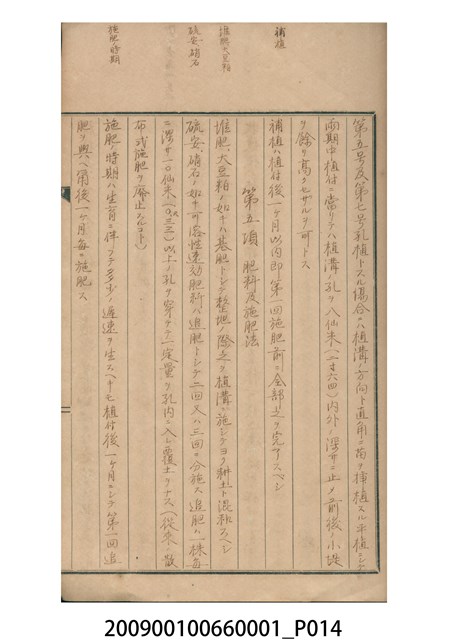 補植
堆肥大豆粕
硫安、硝石
施肥ノ時期
第五号及第七号孔植トスル場合ハ植溝ノ方向ト直角ニ苗ヲ挿植スル平植ニシテ
雨期中植付ニ當リテハ植溝ノ孔ヲ八仙米(二寸六四)内外ノ深サニ止メ前後ノ小堤
ヲ餘リ高クセザルヲ可トス
補植ハ植付後一ケ月以内即第一回施肥前ニ全部之ヲ完了スベシ
第五項 肥料及施肥法
堆肥、大豆粕ノ如キハ基肥トシテ整地ノ際之ヲ植溝ニ施シテヨク耕土ト混和スベシ
硫安、硝石ノ如キ可溶性速効肥料ハ追肥トシテ二回又ハ三回ニ分施ス追肥ハ一株毎
ニ深サ一〇仙米(三寸三)以上ノ孔ヲ穿チテ一定量ヲ孔内ニ入レ覆土ヲナス(從来ノ散
布式施肥ヲ廃止スルコト)
施肥ノ時期ハ生育ニ伴フテ多少ノ遅速ヲ生ズベキモ植付後一ケ月ニシテ第一回追
肥ヲ與ヘ爾後一ケ月毎ニ施肥ス
200900100660001_P014